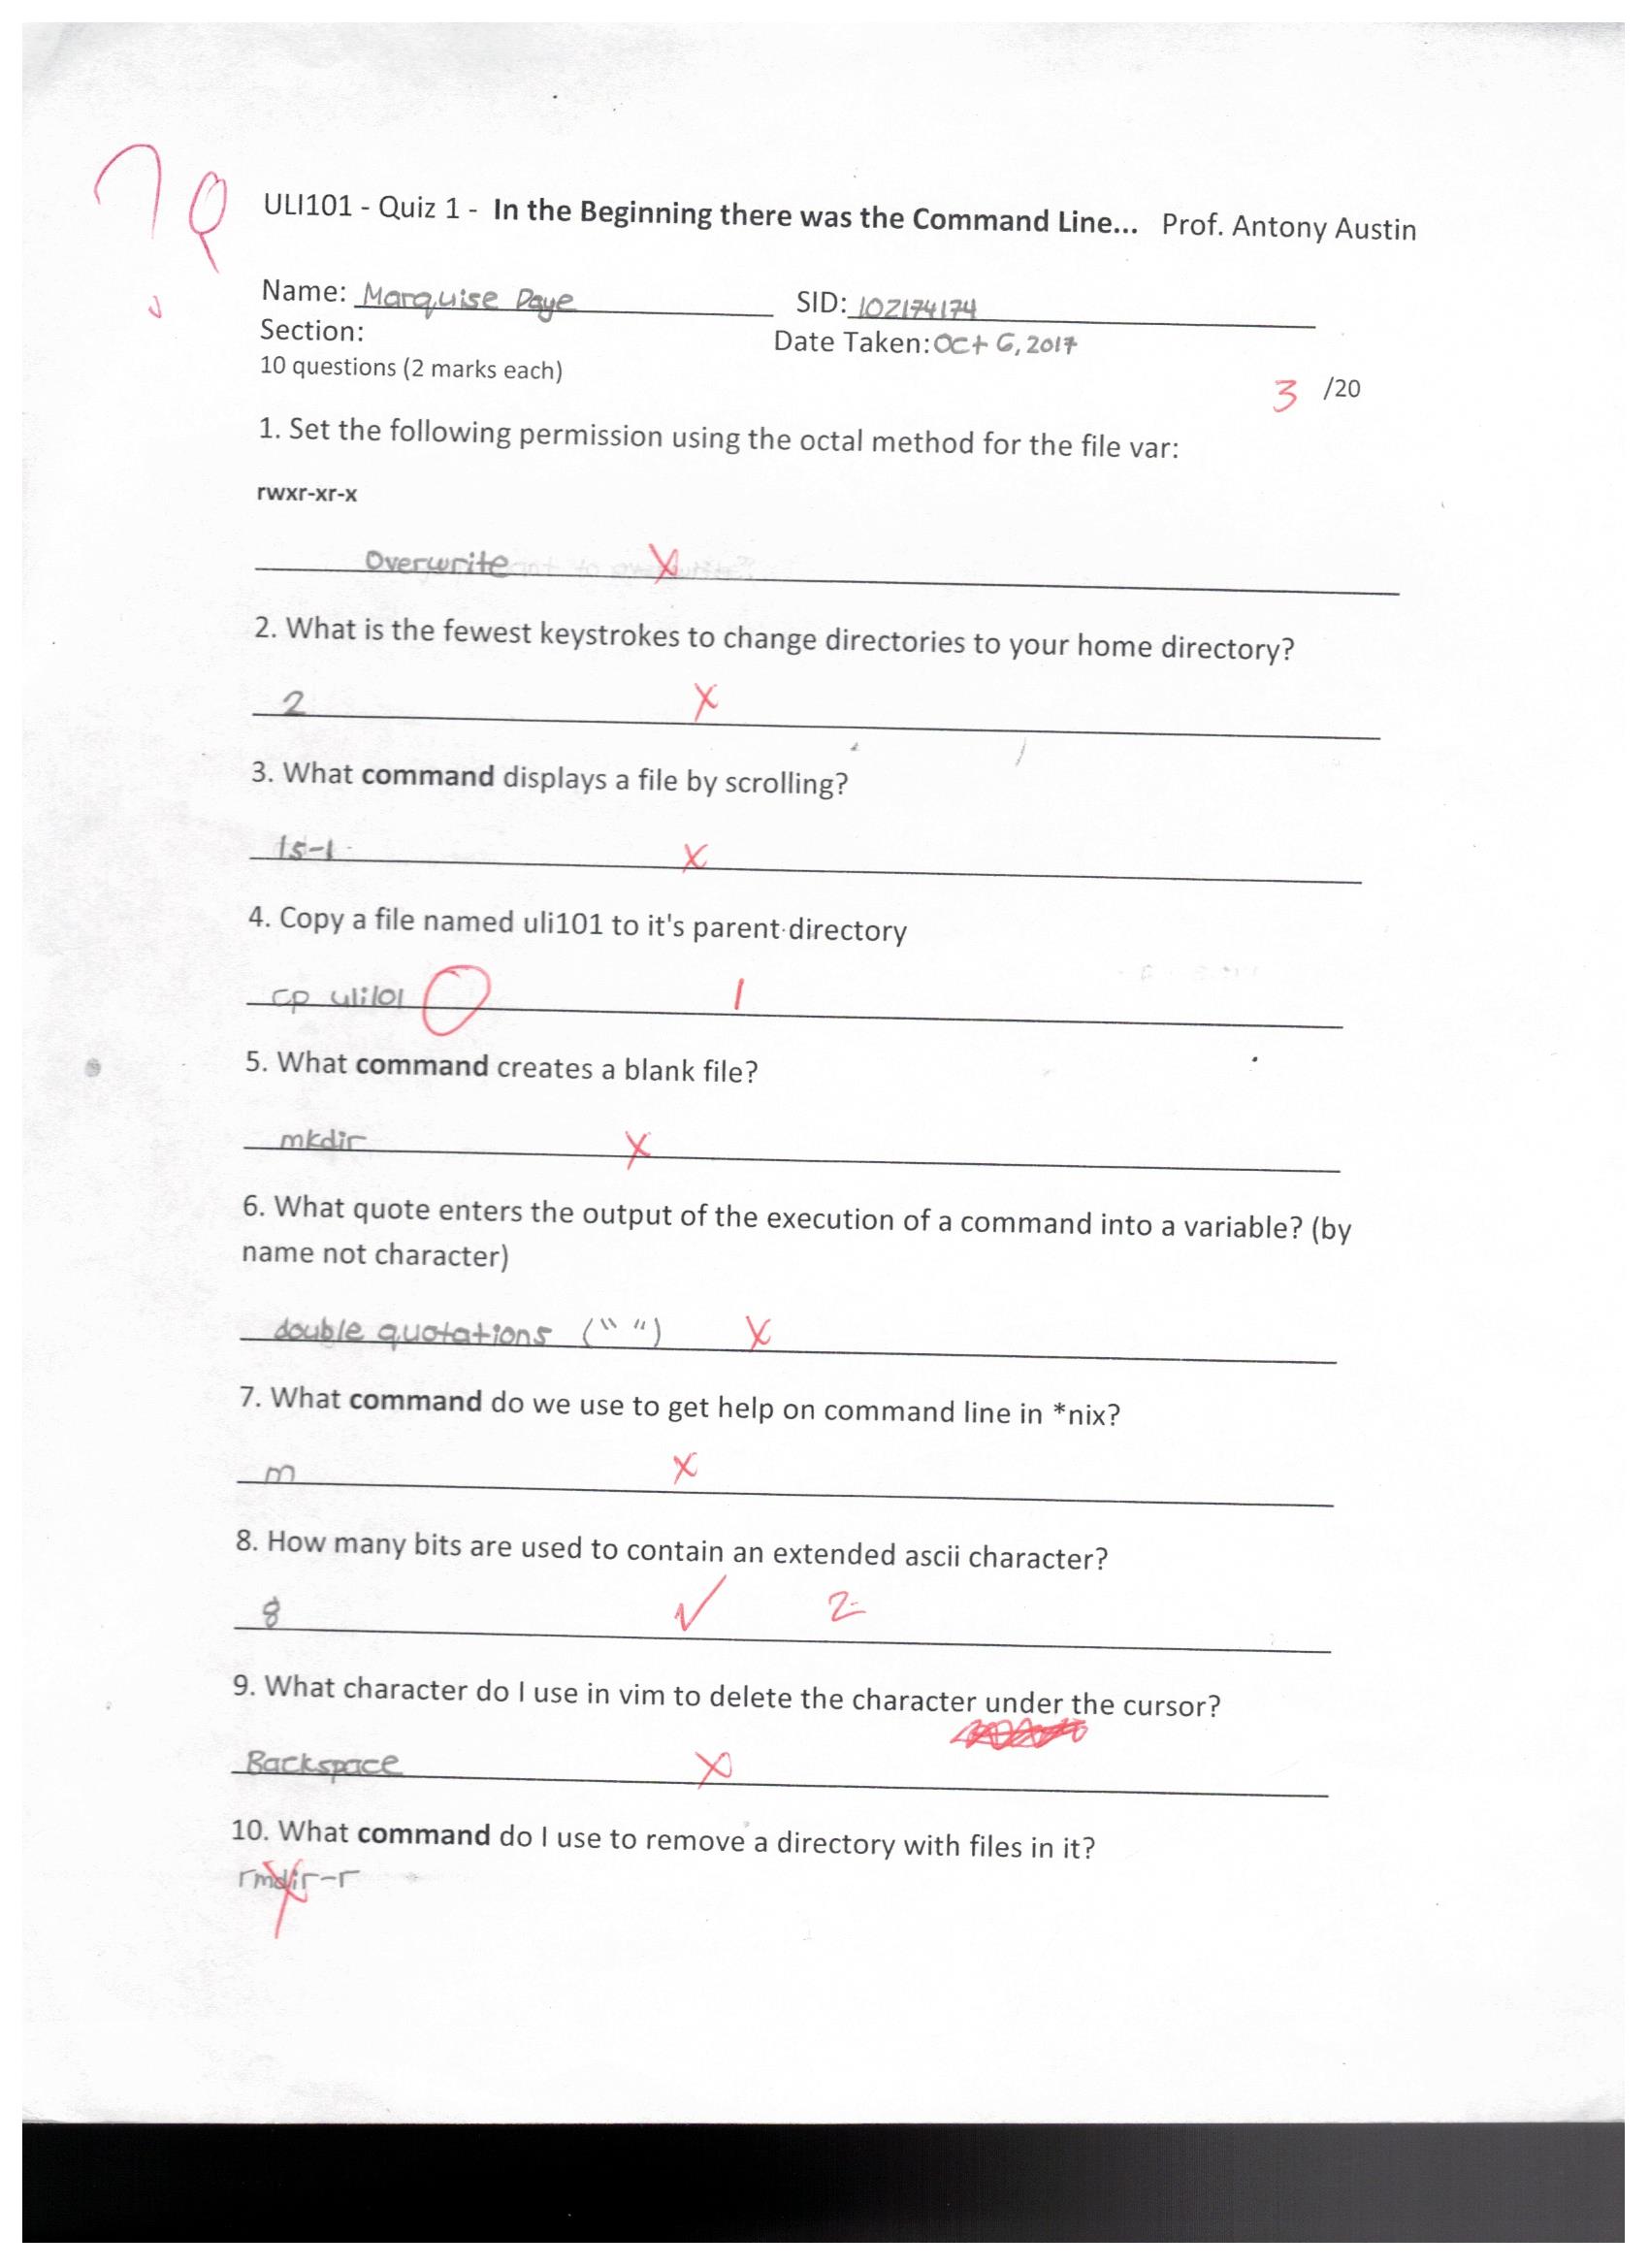 ULI101 - Quiz 1 - In the Beginning there was the Command Line... Prof. Antony Austin
Name: Marquise Paye SID: 102174174
Section: Date Taken: Oct 6, 2017
10 questions (2 marks each)
3 /20
1. Set the following permission using the octal method for the file var:
rwxr-xr-x
Overwrite X
2. What is the fewest keystrokes to change directories to your home directory?
2 X
3. What command displays a file by scrolling?
ls-l X
4. Copy a file named uli101 to it's parent directory
cp uli101 1
5. What command creates a blank file?
mkdir X
6. What quote enters the output of the execution of a command into a variable? (by
name not character)
double quotations (" ") X
7. What command do we use to get help on command line in *nix?
m X
8. How many bits are used to contain an extended ascii character?
8 ✓ 2
9. What character do I use in vim to delete the character under the cursor?
Backspace X
10. What command do I use to remove a directory with files in it?
rmdir-r X